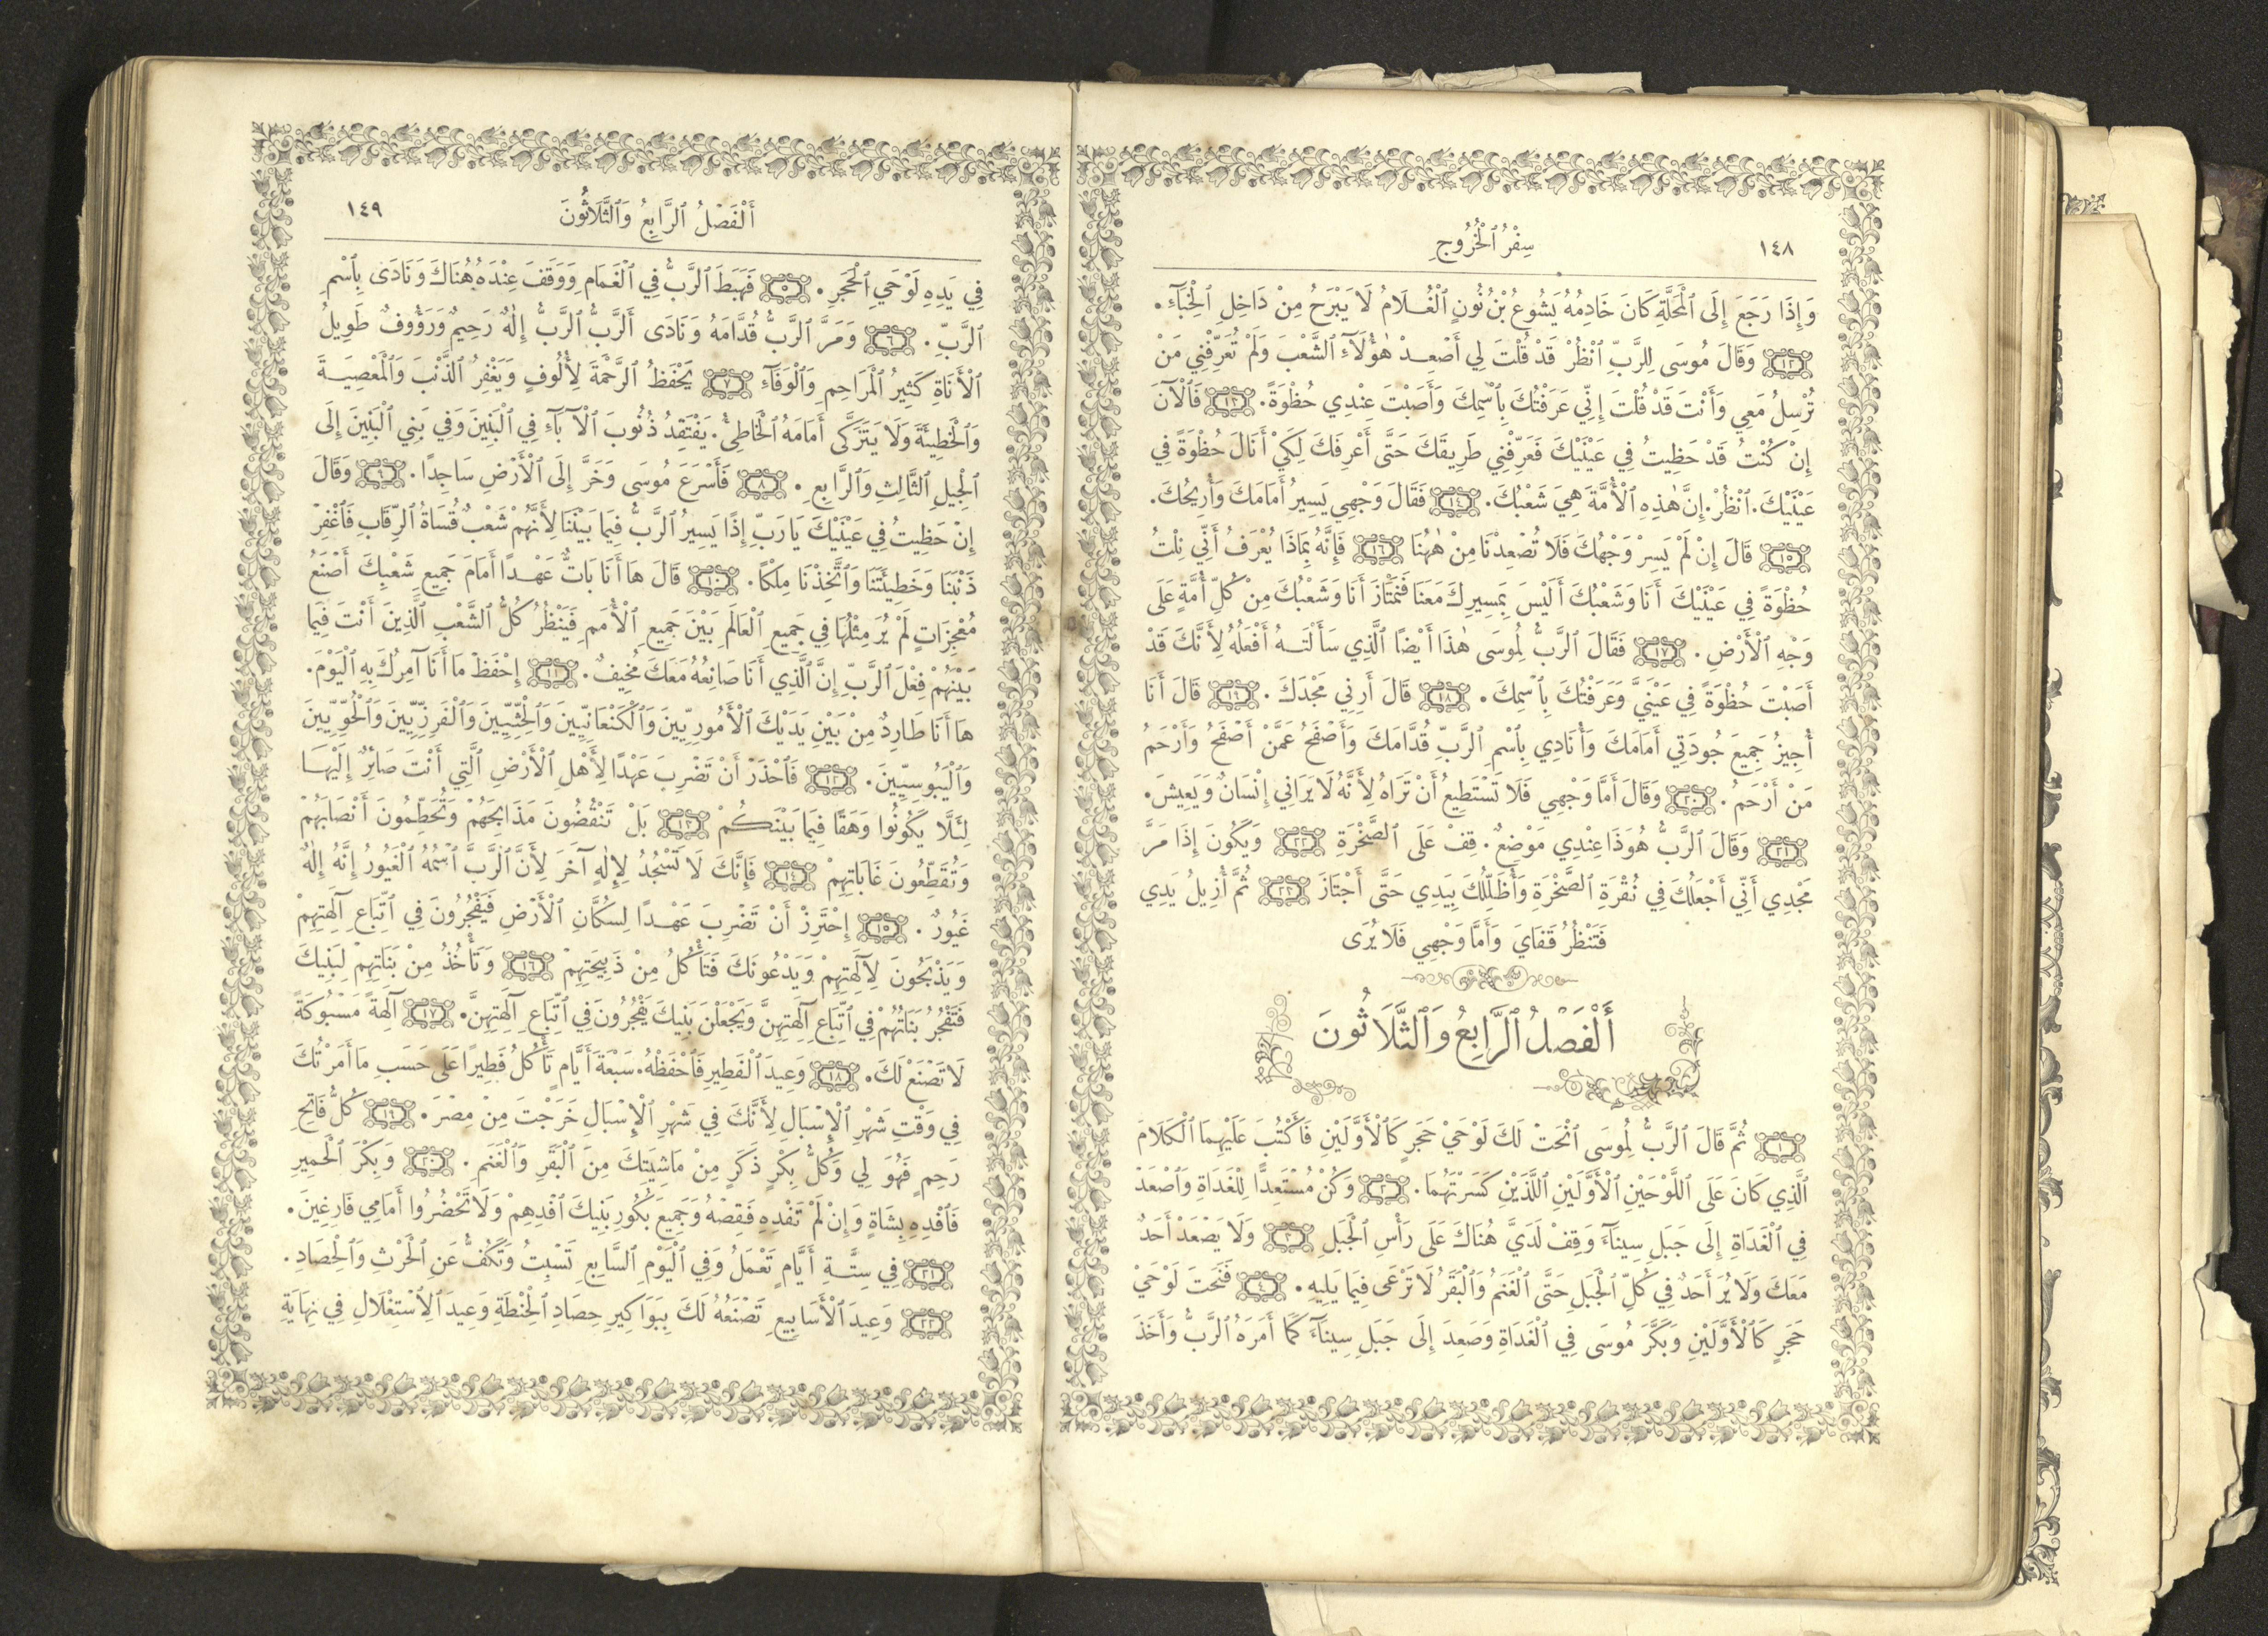 ١٤٨
سِفْرُ ٱلْخُرُوجِ
وَإِذَا رَجَعَ إِلَى ٱلْمَحَلَّةِ كَانَ خَادِمُهُ يَشُوعُ بْنُ نُونٍ ٱلْغُــلَامُ لَا يَبْرَحُ مِنْ دَاخِلِ ٱلْخِبَآءِ.
١٢ وَقَالَ مُوسَى لِلرَّبِّ ٱنْظُرْ قَدْ قُلْتَ لِي أَصْعِــدْ هٰؤُلَآءِ ٱلشَّعْبَ وَلَمْ تُعَرِّفْنِي مَنْ
تُرْسِلُ مَعِي وَأَنْتَ قَدْ قُلْتَ إِنِّي عَرَفْتُكَ بِٱسْمِكَ وَأَصَبْتَ عِنْدِي حُظْوَةً. ١٣ فَٱلْآنَ
إِنْ كُنْتُ قَدْ حَظِيتُ فِي عَيْنَيْكَ فَعَرِّفْنِي طَرِيقَكَ حَتَّى أَعْرِفَكَ لِكَيْ أَنَالَ حُظْوَةً فِي
عَيْنَيْكَ. ٱنْظُرْ. إِنَّ هٰذِهِ ٱلْأُمَّةَ هِيَ شَعْبُكَ. ١٤ فَقَالَ وَجْهِي يَسِيرُ أَمَامَكَ وَأُرِيحُكَ.
١٥ قَالَ إِنْ لَمْ يَسِرْ وَجْهُكَ فَلَا تُصْعِدْنَا مِنْ هٰهُنَا ١٦ فَإِنَّهُ بِمَاذَا يُعْرَفُ أَنِّي نِلْتُ
حُظْوَةً فِي عَيْنَيْكَ أَنَا وَشَعْبُكَ أَلَيْسَ بِمَسِيرِكَ مَعَنَا فَنَمْتَازَ أَنَا وَشَعْبُكَ مِنْ كُلِّ أُمَّةٍ عَلَى
وَجْهِ ٱلْأَرْضِ. ١٧ فَقَالَ ٱلرَّبُّ لِمُوسَى هٰذَا أَيْضًا ٱلَّذِي سَأَلْتَــهُ أَفْعَلُهُ لِأَنَّكَ قَدْ
أَصَبْتَ حُظْوَةً فِي عَيْنَيَّ وَعَرَفْتُكَ بِٱسْمِكَ. ١٨ قَالَ أَرِنِي مَجْدَكَ. ١٩ قَالَ أَنَا
أُجِيزُ جَمِيعَ جُودَتِي أَمَامَكَ وَأُنَادِي بِٱسْمِ ٱلرَّبِّ قُدَّامَكَ وَأَصْفَحُ عَمَّنْ أَصْفَحُ وَأَرْحَمُ
مَنْ أَرْحَمُ. ٢٠ وَقَالَ أَمَّا وَجْهِي فَلَا تَسْتَطِيعُ أَنْ تَرَاهُ لِأَنَّهُ لَا يَرَانِي إِنْسَانٌ وَيَعِيشَ.
٢١ وَقَالَ ٱلرَّبُّ هُوَذَا عِنْدِي مَوْضِعٌ. قِفْ عَلَى ٱلصَّخْرَةِ ٢٢ وَيَكُونَ إِذَا مَرَّ
مَجْدِي أَنِّي أَجْعَلُكَ فِي نُقْرَةِ ٱلصَّخْرَةِ وَأُظَلِّلُكَ بِيَدِي حَتَّى أَجْتَازَ ٢٣ ثُمَّ أُزِيلُ يَدِي
فَتَنْظُرُ قَفَايَ وَأَمَّا وَجْهِي فَلَا يُرَى
أَلْفَصْلُ ٱلرَّابِعُ وَٱلثَّلَاثُونَ
١ ثُمَّ قَالَ ٱلرَّبُّ لِمُوسَى ٱنْحَتْ لَكَ لَوْحَيْ حَجَرٍ كَٱلْأَوَّلَيْنِ فَأَكْتُبَ عَلَيْهِمَا ٱلْكَلَامَ
ٱلَّذِي كَانَ عَلَى ٱللَّوْحَيْنِ ٱلْأَوَّلَيْنِ ٱللَّذَيْنِ كَسَرْتَهُمَا. ٢ وَكُنْ مُسْتَعِدًّا لِلْغَدَاةِ وَٱصْعَدْ
فِي ٱلْغَدَاةِ إِلَى جَبَلِ سِينَآءَ وَقِفْ لَدَيَّ هُنَاكَ عَلَى رَأْسِ ٱلْجَبَلِ ٣ وَلَا يَصْعَدْ أَحَدٌ
مَعَكَ وَلَا يُرَ أَحَدٌ فِي كُلِّ ٱلْجَبَلِ حَتَّى ٱلْغَنَمُ وَٱلْبَقَرُ لَا تَرْعَى فِيمَا يَلِيهِ. ٤ فَنَحَتَ لَوْحَيْ
حَجَرٍ كَٱلْأَوَّلَيْنِ وَبَكَّرَ مُوسَى فِي ٱلْغَدَاةِ وَصَعِدَ إِلَى جَبَلِ سِينَآءَ كَمَا أَمَرَهُ ٱلرَّبُّ وَأَخَذَ
أَلْفَصْلُ ٱلرَّابِعُ وَٱلثَّلَاثُونَ
١٤٩
فِي يَدِهِ لَوْحَيِ ٱلْحَجَرِ. ٥ فَهَبَطَ ٱلرَّبُّ فِي ٱلْغَمَامِ وَوَقَفَ عِنْدَهُ هُنَاكَ وَنَادَى بِٱسْمِ
ٱلرَّبِّ. ٦ وَمَرَّ ٱلرَّبُّ قُدَّامَهُ وَنَادَى أَلرَّبُّ ٱلرَّبُّ إِلٰهٌ رَحِيمٌ وَرَؤُوفٌ طَوِيلُ
ٱلْأَنَاةِ كَثِيرُ ٱلْمَرَاحِمِ وَٱلْوَفَآءِ ٧ يَحْفَظُ ٱلرَّحْمَةَ لِأُلُوفٍ وَيَغْفِرُ ٱلذَّنْبَ وَٱلْمَعْصِيَــةَ
وَٱلْخَطِيئَةَ وَلَا يَتَزَكَّى أَمَامَهُ ٱلْخَاطِئُ. يَفْتَقِدُ ذُنُوبَ ٱلْآبَآءِ فِي ٱلْبَنِينَ وَفِي بَنِي ٱلْبَنِينَ إِلَى
ٱلْجِيلِ ٱلثَّالِثِ وَٱلرَّابِعِ. ٨ فَأَسْرَعَ مُوسَى وَخَرَّ إِلَى ٱلْأَرْضِ سَاجِدًا. ٩ وَقَالَ
إِنْ حَظِيتُ فِي عَيْنَيْكَ يَا رَبِّ إِذًا يَسِيرُ ٱلرَّبُّ فِيمَا بَيْنَنَا لِأَنَّهُمْ شَعْبٌ قُسَاةُ ٱلرِّقَابِ فَٱغْفِرْ
ذَنْبَنَا وَخَطِيئَتَنَا وَٱتَّخِذْنَا مِلْكًا. ١٠ قَالَ هَا أَنَا بَاتٌّ عَهْــدًا أَمَامَ جَمِيعِ شَعْبِكَ أَصْنَعُ
مُعْجِزَاتٍ لَمْ يُرَ مِثْلُهَا فِي جَمِيعِ ٱلْعَالَمِ بَيْنَ جَمِيعِ ٱلْأُمَمِ فَيَنْظُرُ كُلُّ ٱلشَّعْبِ ٱلَّذِينَ أَنْتَ فِيمَا
بَيْنَهُمْ فِعْلَ ٱلرَّبِّ إِنَّ ٱلَّذِي أَنَا صَانِعُهُ مَعَكَ مُخِيفٌ. ١١ إِحْفَظْ مَا أَنَا آمِرُكَ بِهِ ٱلْيَوْمَ.
هَا أَنَا طَارِدٌ مِنْ بَيْنِ يَدَيْكَ ٱلْأَمُورِيِّينَ وَٱلْكَنْعَانِيِّينَ وَٱلْحِثِّيِّينَ وَٱلْفَرِزِّيِّينَ وَٱلْحُوِّيِّينَ
وَٱلْيَبُوسِيِّينَ. ١٢ فَٱحْذَرْ أَنْ تَضْرِبَ عَهْدًا لِأَهْلِ ٱلْأَرْضِ ٱلَّتِي أَنْتَ صَائِرٌ إِلَيْهَــا
لِئَلَّا يَكُونُوا وَهَقًا فِيمَا بَيْنَكُمْ ١٣ بَلْ تَنْقُضُونَ مَذَابِحَهُمْ وَتُحَطِّمُونَ أَنْصَابَهُمْ
وَتُقَطِّعُونَ غَابَاتِهِمْ ١٤ فَإِنَّكَ لَا تَسْجُدُ لِإِلٰهٍ آخَرَ لِأَنَّ ٱلرَّبَّ ٱسْمُهُ ٱلْغَيُورُ إِنَّهُ إِلٰهٌ
غَيُورٌ. ١٥ إِحْتَرِزْ أَنْ تَضْرِبَ عَهْــدًا لِسُكَّانِ ٱلْأَرْضِ فَيَفْجُرُونَ فِي ٱتِّبَاعِ آلِهَتِهِمْ
وَيَذْبَحُونَ لِآلِهَتِهِمْ وَيَدْعُونَكَ فَتَأْكُلُ مِنْ ذَبِيحَتِهِمْ ١٦ وَتَأْخُذُ مِنْ بَنَاتِهِمْ لِبَنِيكَ
فَتَفْجُرُ بَنَاتُهُمْ فِي ٱتِّبَاعِ آلِهَتِهِنَّ وَيَجْعَلْنَ بَنِيكَ يَفْجُرُونَ فِي ٱتِّبَاعِ آلِهَتِهِنَّ. ١٧ آلِهَةً مَسْبُوكَةً
لَا تَصْنَعْ لَكَ. ١٨ وَعِيدَ ٱلْفَطِيرِ فَٱحْفَظْهُ. سَبْعَةَ أَيَّامٍ تَأْكُلُ فَطِيرًا عَلَى حَسَبِ مَا أَمَرْتُكَ
فِي وَقْتِ شَهْرِ ٱلْإِسْبَالِ لِأَنَّكَ فِي شَهْرِ ٱلْإِسْبَالِ خَرَجْتَ مِنْ مِصْرَ. ١٩ كُلُّ فَاتِحِ
رَحِمٍ فَهُوَ لِي وَكُلُّ بِكْرٍ ذَكَرٍ مِنْ مَاشِيَتِكَ مِنَ ٱلْبَقَرِ وَٱلْغَنَمِ. ٢٠ وَبِكْرَ ٱلْحَمِيرِ
فَٱفْدِهِ بِشَاةٍ وَإِنْ لَمْ تَفْدِهِ فَقِصَّهُ وَجَمِيعَ بُكُورِ بَنِيكَ ٱفْدِهِمْ وَلَا تَحْضُرُوا أَمَامِي فَارِغِينَ.
٢١ فِي سِتَّــةِ أَيَّامٍ تَعْمَلُ وَفِي ٱلْيَوْمِ ٱلسَّابِعِ تَسْبِتُ وَتَكُفُّ عَنِ ٱلْحَرْثِ وَٱلْحِصَادِ.
٢٢ وَعِيدَ ٱلْأَسَابِيعِ تَصْنَعُهُ لَكَ بِبَوَاكِيرِ حِصَادِ ٱلْحِنْطَةِ وَعِيدَ ٱلِٱسْتِغْلَالِ فِي نِهَايَةِ